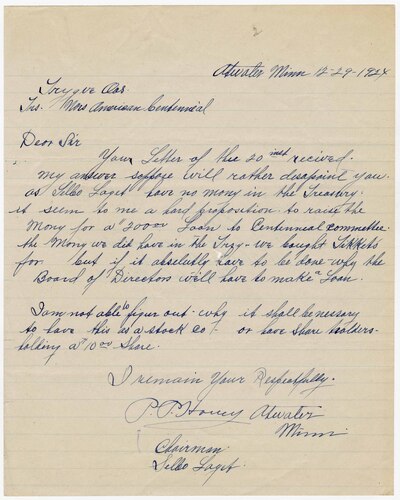 2
Atwater Minn 12-29-1924
Trygve Oas
Trs. Nors American Centennial
Dear Sir
Your Letter of the 20 inst recived.
my answer suppose will rather disapoint you
as Selbo Laget have no mony in the Treasury.
it seem to me a hard proposition to raise the
Mony for a 200.00 Loan to Centennial committee
the Mony we did have in the Trzy - we bought Tikkets
for but if it absolutely have to be done why the
Board of Directors we'll have to make a Loan.
I am not able to figer out why it shall be nessary
to have this as a stock co/- or have share holders-
holding a 10.00 Share.
I remain Your Respectfully.
P. P. Honey Atwater
Minn
Chairman
Selbo Laget.